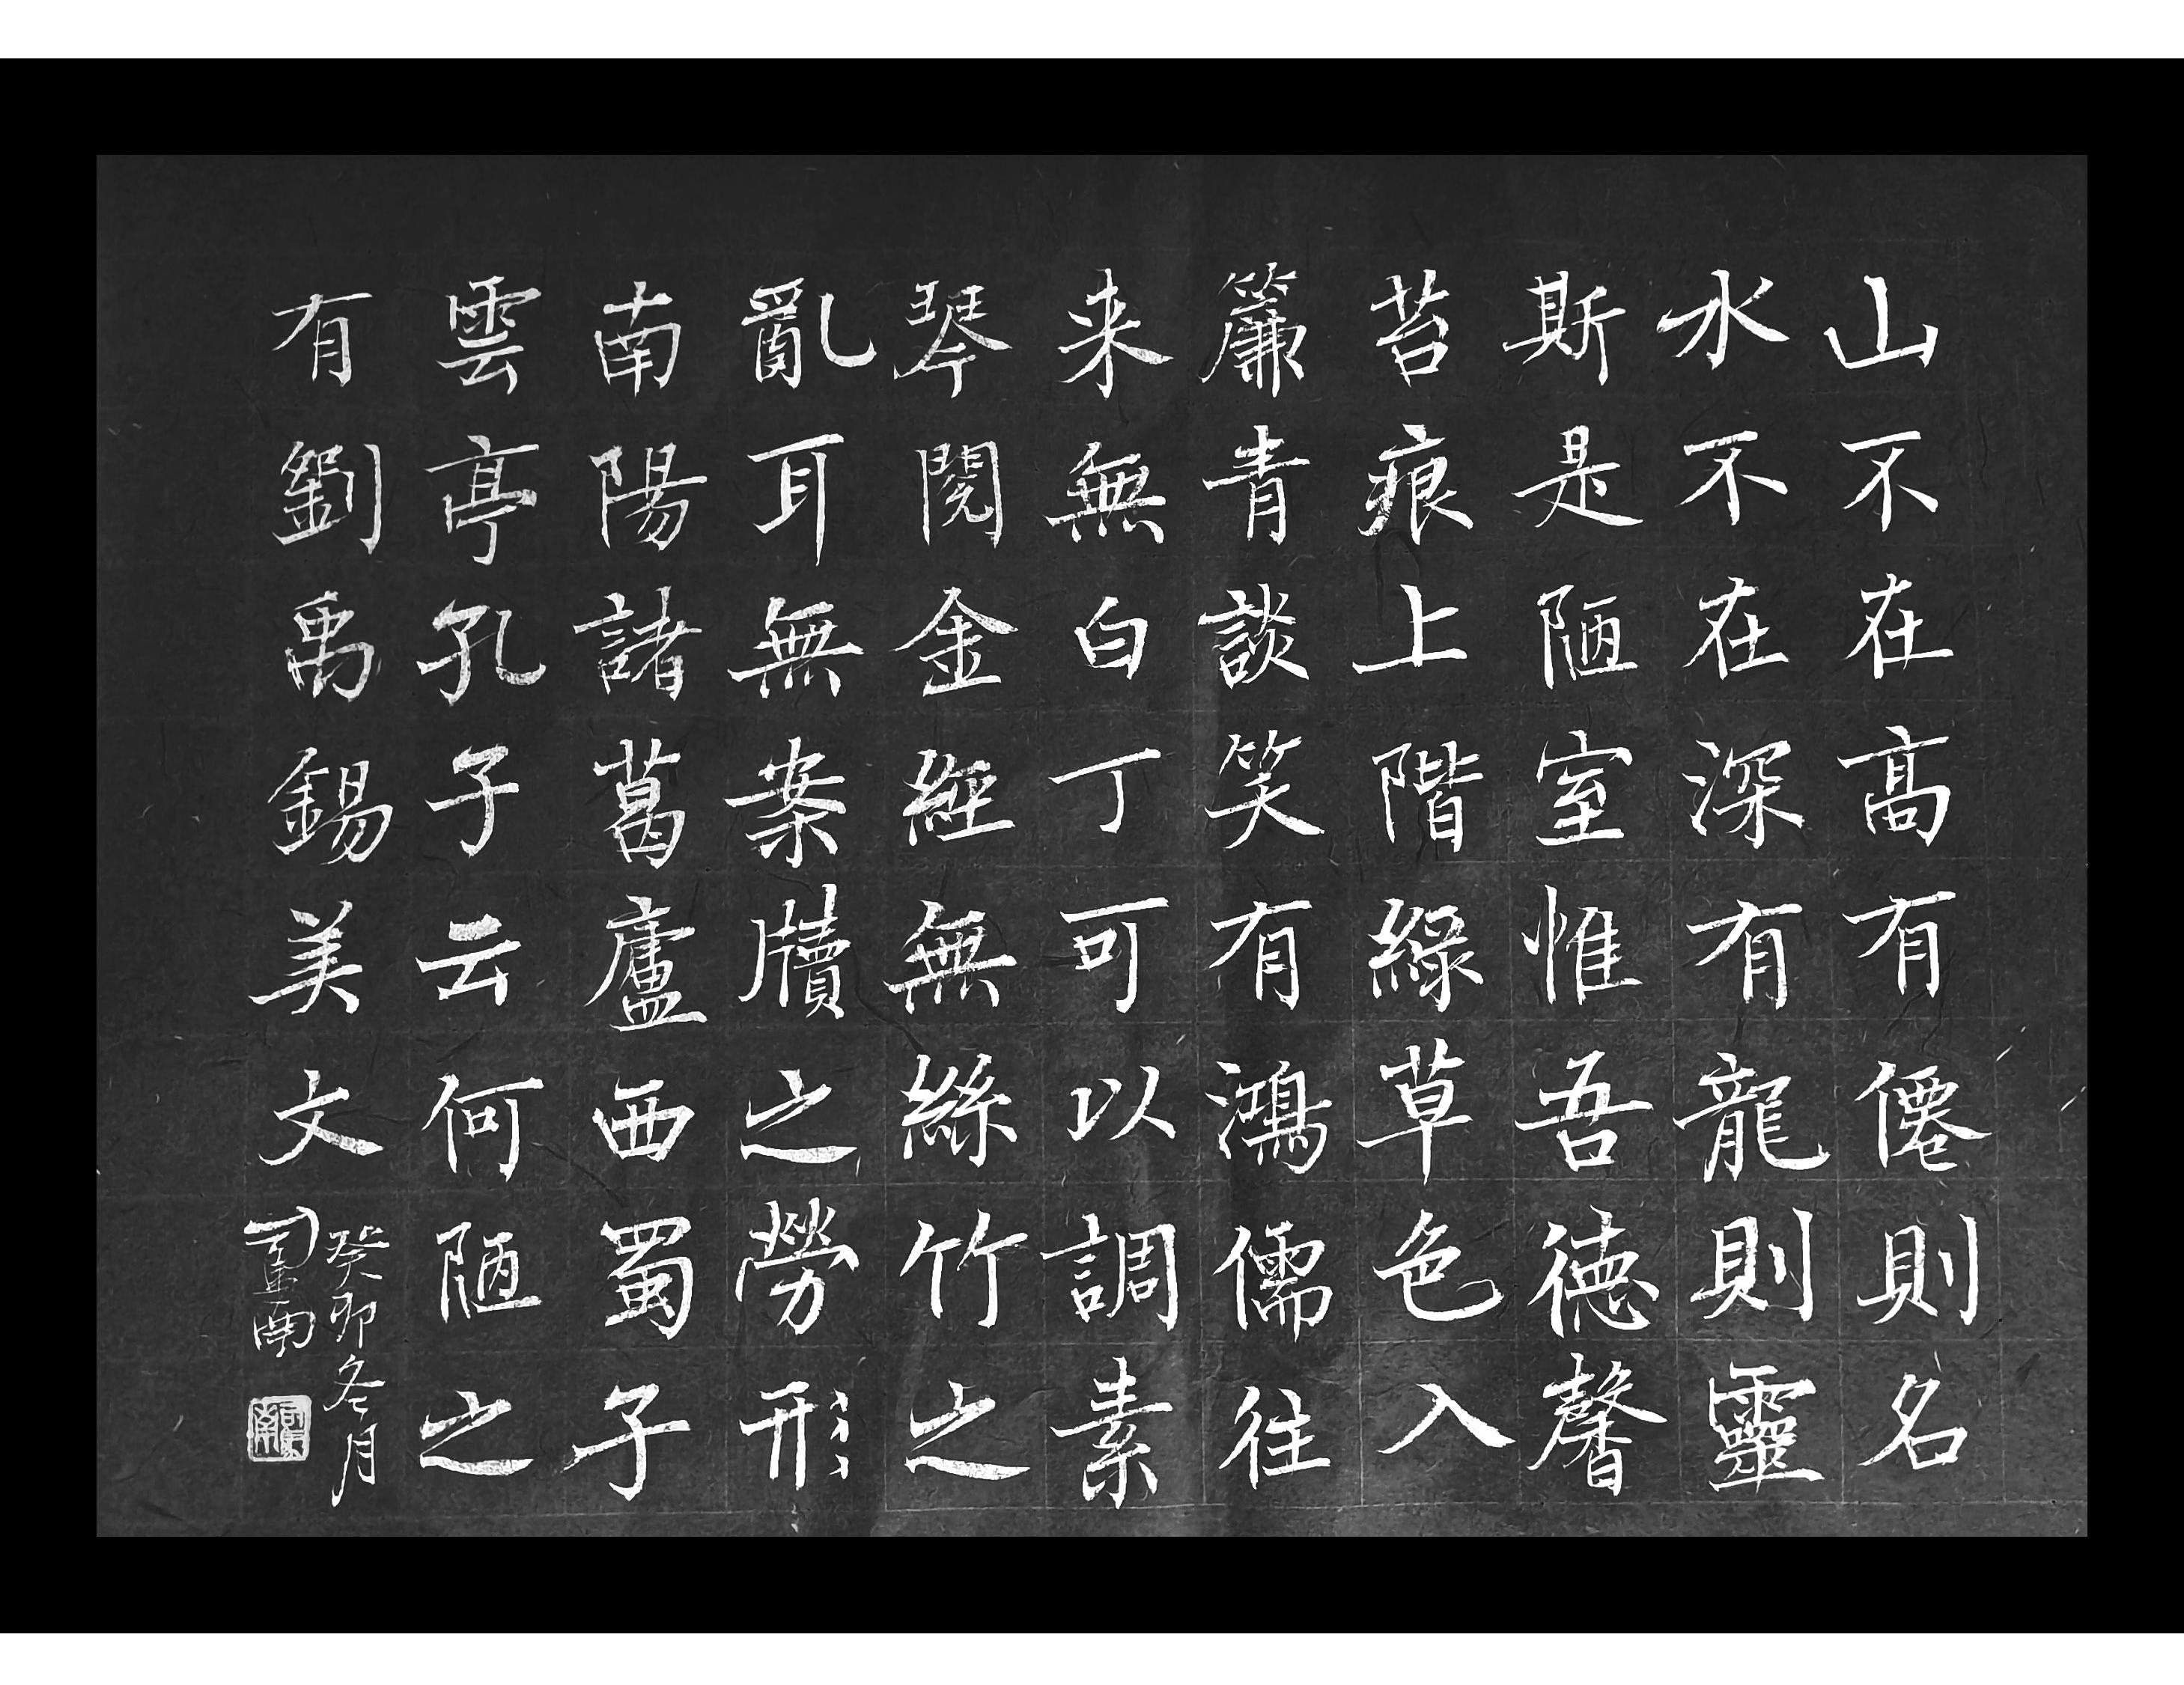 山不在高有僊則名
水不在深有龍則靈
斯是陋室惟吾德馨
苔痕上階綠草色入
簾青談笑有鴻儒往
来無白丁可以調素
琴閱金經無絲竹之
亂耳無案牘之勞形
南陽諸葛廬西蜀子
雲亭孔子云何陋之
有劉禹錫美文
癸卯冬月